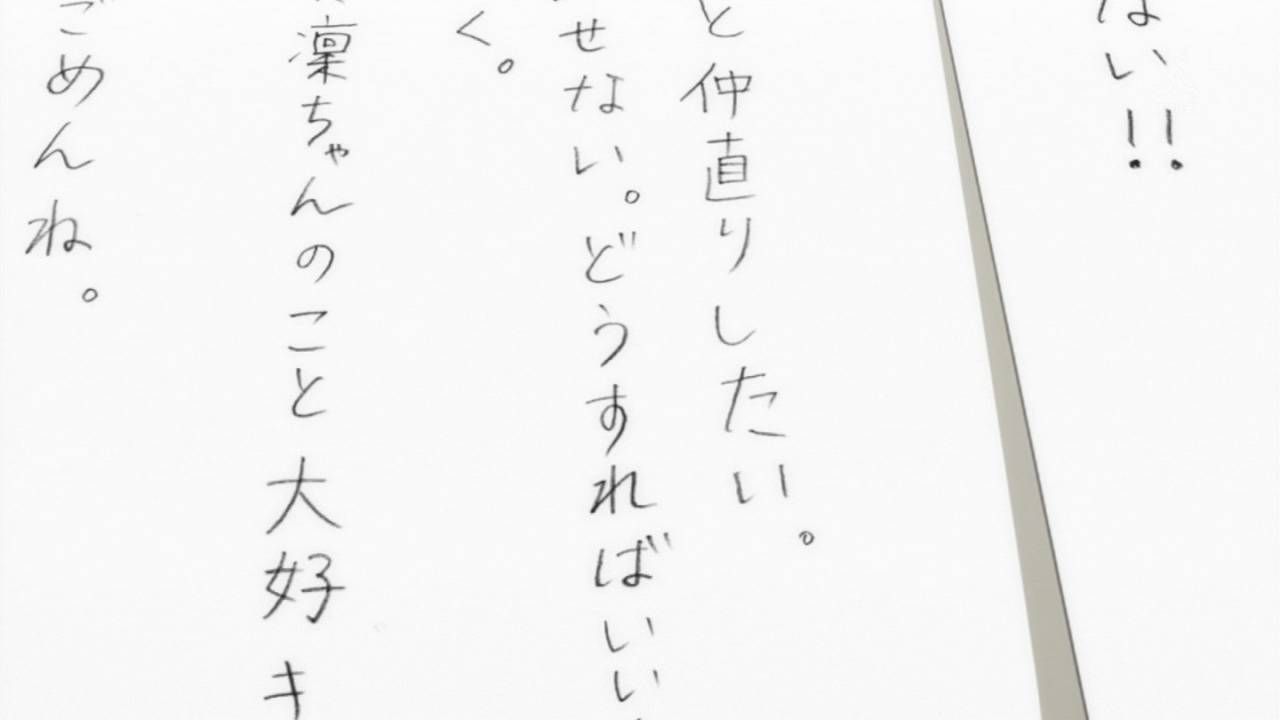 ない!!
と仲直りしたい。
せない。どうすればいい
く。
凜ちゃんのこと大好キ
ごめんね。